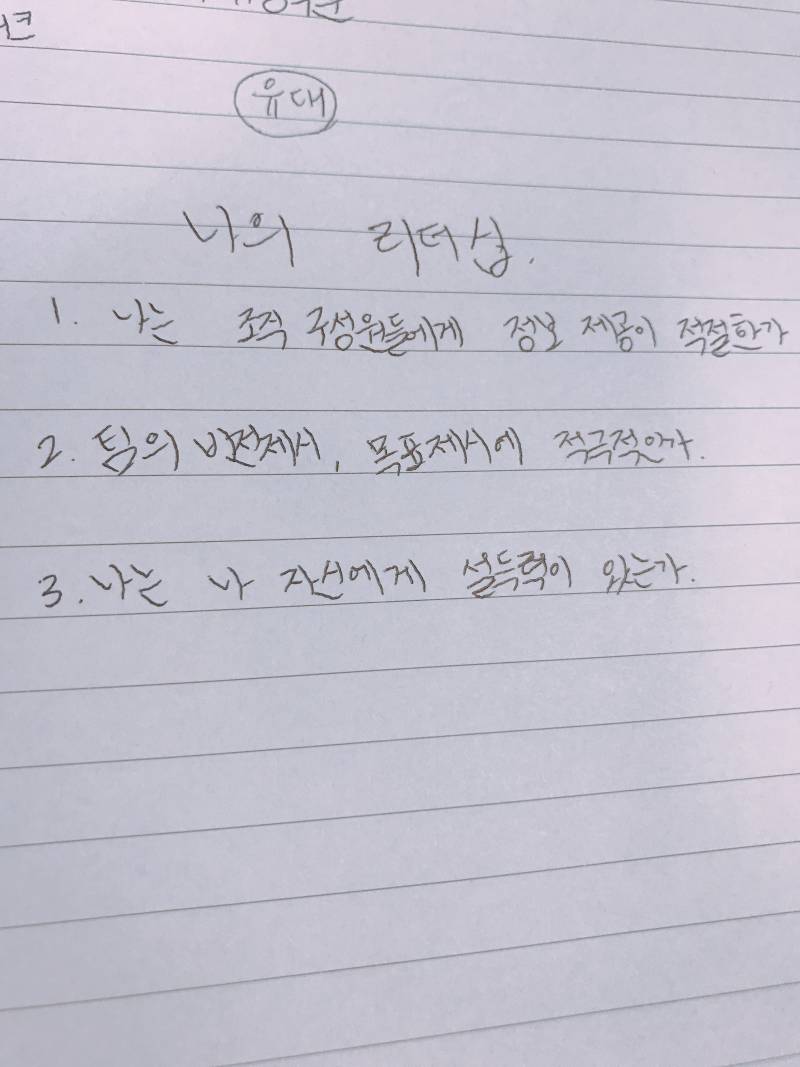 유대
나의 리더십.
1. 나는 조직 구성원들에게 정보 제공이 적절한가
2. 팀의 비전제시, 목표제시에 적극적인가.
3. 나는 나 자신에게 설득력이 있는가.